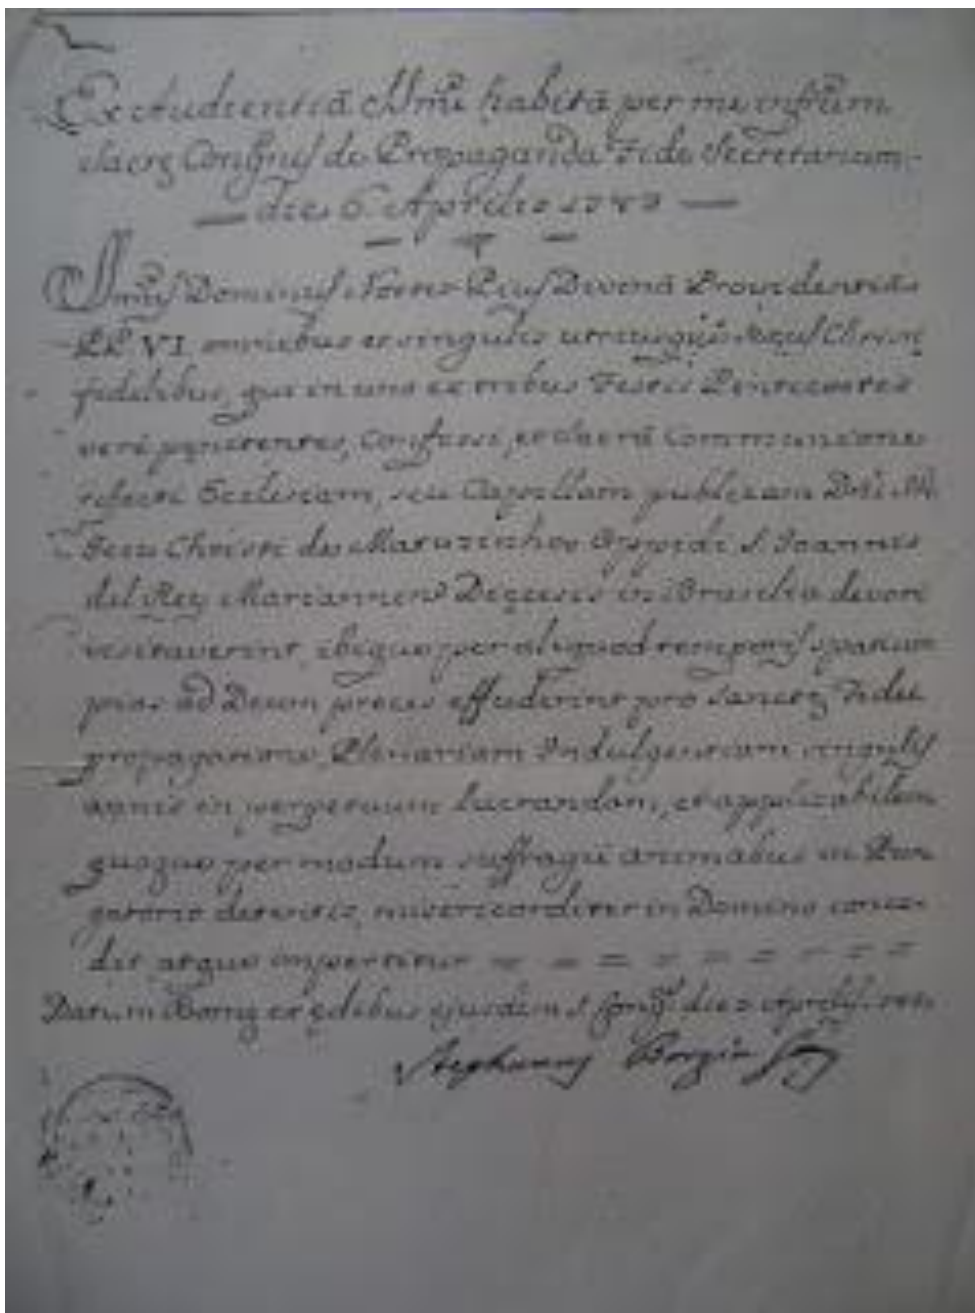 Ex Audientiâ SSmi habitâ per me infrũm
Sacrę Congñis de Propaganda Fide Secretarium
die 6. Aprilis
SSmus Dominus Noster Pius Divinâ Providentiâ
PP. VI. omnibus et singulis utriusque Sexus Christi
fidelibus, qui in uno ex tribus Festis Pentecostes
verè pęnitentes, Confessi, et Sacrâ Communione
refecti Ecclesiam, seu Capellam publicam Dñi N.
Jesu Christi de Matuzinhos Oppidi S. Joannis
del Rey Mariannens Dięcesis in Brasilia devotè
visitaverint, ibique per aliquod temporis spatium
pias ad Deum preces effuderint pro Sanctę Fidei
propagatione, Plenariam Indulgentiam singulis
annis in perpetuum lucrandam, et applicabilem
quoque per modum suffragii animabus in Pur
gatorio detentis, misericorditer in Domino conce-
dit, atque impertitur = = = = = = = =
Datum Romę ex ędibus ejusdem S. Congñis die Aprilis
Stephanus Borgia